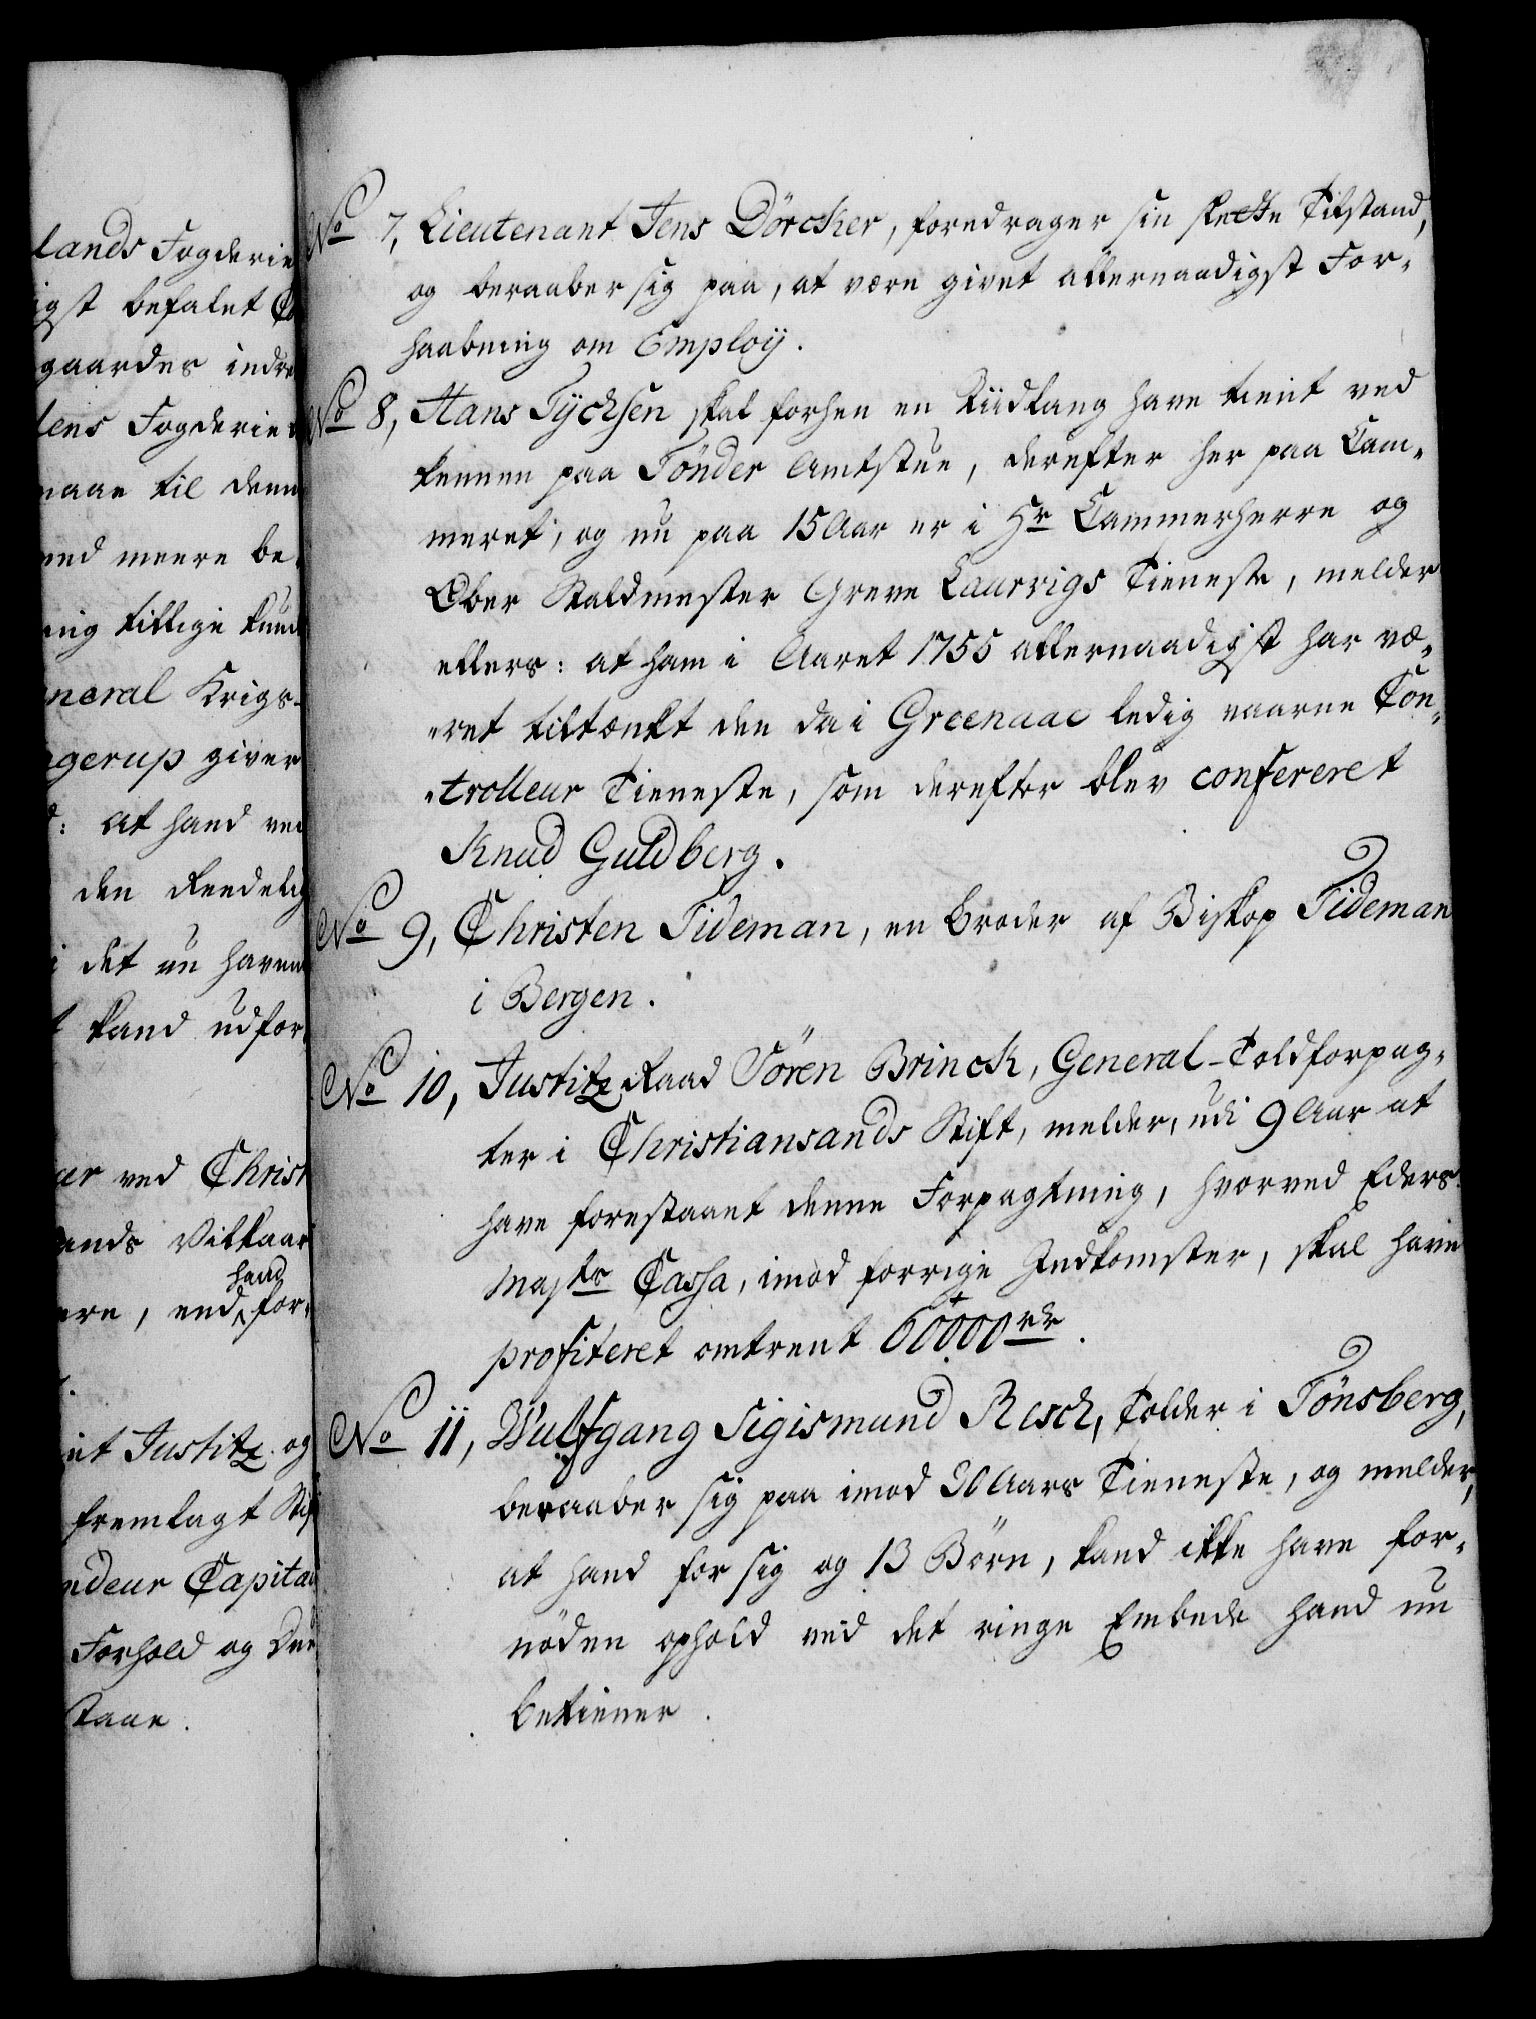 lands Fogderie
igst befalet
gaardes indre
lens Fogderie
maae til denn
med meere be-
ing tillige kund
neral Krigs-
gerup giver
: at hand ved
den Reedelig
i det nu haven
kand udfor
ved Christ
ands Vilkaar
hand
ere, end for-
Justitz og
fremlagt Stif
ndeur Capitai
Forhold og
staae.
No 7, Lieutenant Jens Dörcker, foredrager sin slette Tilstand,
og beraaber sig paa, at være givet allernaadigst For-
haabning om Employ.
No 8, Hans Tÿchsen skal forhen en Tiidlang have tient ved
pennen paa Tönder Amtstue, derefter her paa Cam-
meret, og nu paa 15 Aar er i Hr Cammerherre og
Ober Staldmester Greve Laurvigs Tieneste, melder
ellers: at ham i Aaret 1755 allernaadigst har væ-
ret tiltænkt den da i Greenaae ledig værne Con-
trolleur Tieneste, som derefter blev confereret
Knud Guldberg.
No 9, Christen Tideman, en Broder af Biskop Tideman
i Bergen.
No 10, Justitz Raad Sören Brinck, General-Toldforpag-
ter i Christiansands Stift, melder, udi 9 Aar at
have forestaaet denne Forpagtning, hvorved Eders
Majts Cassa, imod forrige Indkomster, skal have
profiteret omtrent 60000 rdr.
No 11, Wulfgang Sigismund Resch, Tolder i Tönsberg,
beraaber sig paa imod 30 Aars Tieneste, og melder,
at hand for sig og 13 Börn, kand ikke have for-
nöden ophold ved det ringe Embede hand nu
betiener.